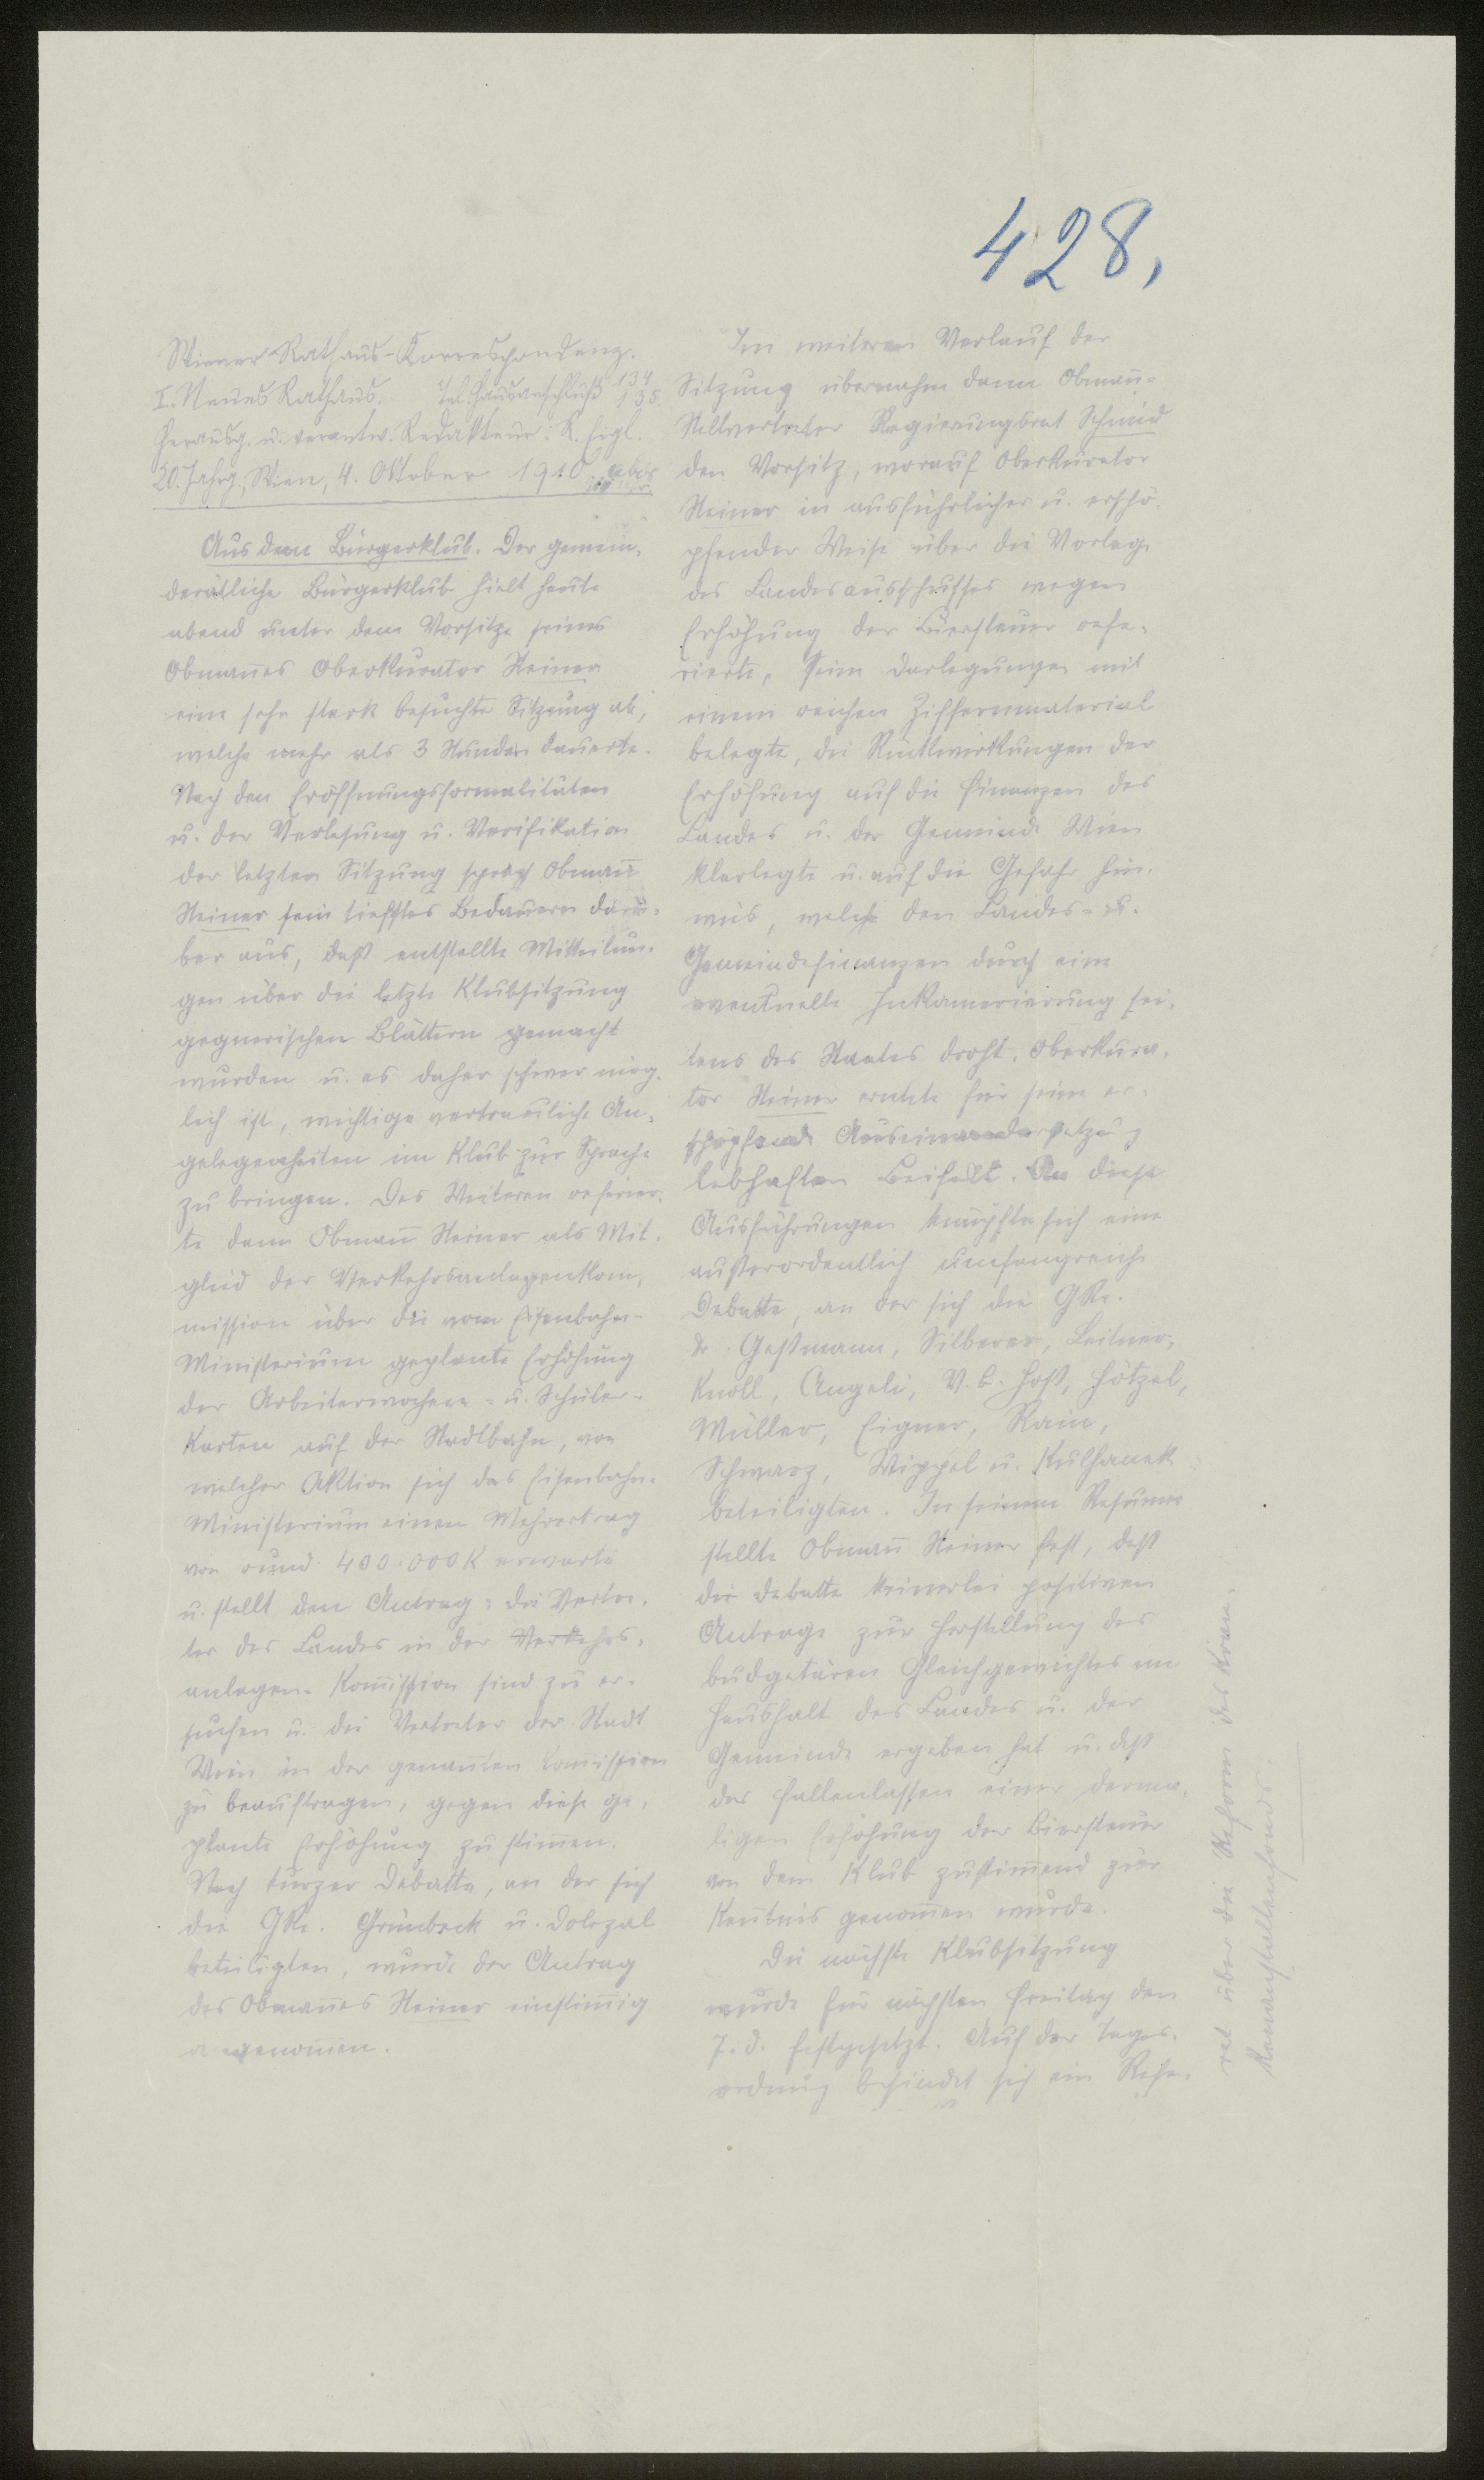 428,
Wiener Rathaus-Korrespondenz.
I. Neues Rathaus. Tel. Hausanschluß 134
135.
Herausg. u. verantw. Redakteur: R. Eigl.
20. Jahrg., Wien, 4. Oktober 1910. abds
Aus dem Bürgerklub. Der gemein-
derätliche Bürgerklub hielt heute
abend unter dem Vorsitze seines
Obmañes Oberkurator Steiner
eine sehr stark besuchte Sitzung ab,
welche mehr als 3 Stunden dauerte.
Nach den Eröffnungsformalitäten
u. der Verlesung u. Verifikation
der letzten Sitzung sprach Obmañ
Steiner sein tiefstes Bedauern darü-
ber aus, daß entstellte Mitteilun-
gen über die letzte Klubsitzung
gegnerischen Blättern gemacht
wurden u. es daher schwer mög-
lich ist, wichtige vertrauliche An-
gelegenheiten im Klub zur Sprache
zu bringen. Des Weiteren referier-
te dann Obmañ Steiner als Mit-
glied der Verkehrsanlagenkom-
mission über die vom Eisenbahn-
Ministerium geplante Erhöhung
der Arbeiterwochen- u. Schüler-
Karten auf der Stadtbahn, von
welcher Aktion sich das Eisenbahn-
Ministerium einen Mehrertrag
von rund 400.000 K erwarte
u. stellt den Antrag: die Vertre-
ter des Landes in der Verkehrs-
anlagen-Kom̄ission sind zu er-
suchen u. die Vertreter der Stadt
Wien in der genañten Kom̄ission
zu beauftragen, gegen diese ge-
plante Erhöhung zu stim̄en.
Nach kurzer Debatte, an der sich
die GRe. Grünbeck u. Dolezal
beteiligten, wurde der Antrag
des Obmañes Steiner einstim̄ig
angenom̄en.
Im weiteren Verlauf der
Sitzung übernahm dann Obmañ-
Stellvertreter Regierungsrat Schmid
den Vorsitz, worauf Oberkurator
Steiner in ausführlicher u. erschö-
pfender Weise über die Vorlage
des Landesausschusses wegen
Erhöhung der Biersteuer refe-
rierte, seine Darlegungen mit
einem reichen Ziffernmaterial
belegte, die Rückwirkungen der
Erhöhung auf die Finanzen des
Landes u. der Gemeinde Wien
klarlegte u. auf die Gefahr hin-
wies, welche den Landes- u.
Gemeindefinanzen durch eine
eventuelle Inkamerierung sei-
tens des Staates droht. Oberkura-
tor Steiner erntete für seine er-
schöpfende Auseinandersetzung
lebhaften Beifall. An diese
Ausführungen knüpfte sich eine
außerordentlich umfangreiche
Debatte, an der sich die GRe.
Dr. Geßmann, Silberer, Leitner,
Knoll, Angeli, V.B. Hoß, Hötzel,
Müller, Eigner, Rain,
Schwarz, Wippel u. Kulhanek
beteiligten. In seinem Resume
stellte Obmañ Steiner fest, daß
die Debatte keinerlei positiven
Antrage zur Herstellung des
budgetären Gleichgewichtes im
Haushalt des Landes u. der
Gemeinde ergeben hat u. daß
das Fallenlassen einer derma-
ligen Erhöhung der Biersteuer
von dem Klub zustim̄end zur
Keñtnis genom̄en wurde.
Die nächste Klubsitzung
wurde für nächsten Freitag den
7. d. festgesetzt. Auf der Tages-
ordnung befindet sich ein Refe-
rat über die Reform des Kran-
kenanstaltenfonds.